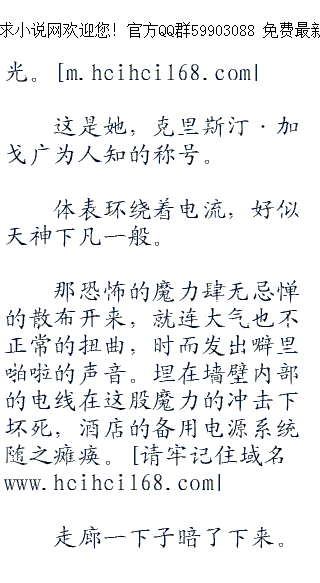 求小说网欢迎您! 官方QQ群59903088 免费最新
光。[m.hcihci168.com|
这是她，克里斯汀·加
戈广为人知的称号。
体表环绕着电流，好似
天神下凡一般。
那恐怖的魔力肆无忌惮
的散布开来，就连大气也不
正常的扭曲，时而发出噼里
啪啦的声音。埋在墙壁内部
的电线在这股魔力的冲击下
坏死，酒店的备用电源系统
随之瘫痪。[请牢记住域名
www.hcihci168.com|
走廊一下子暗了下来。